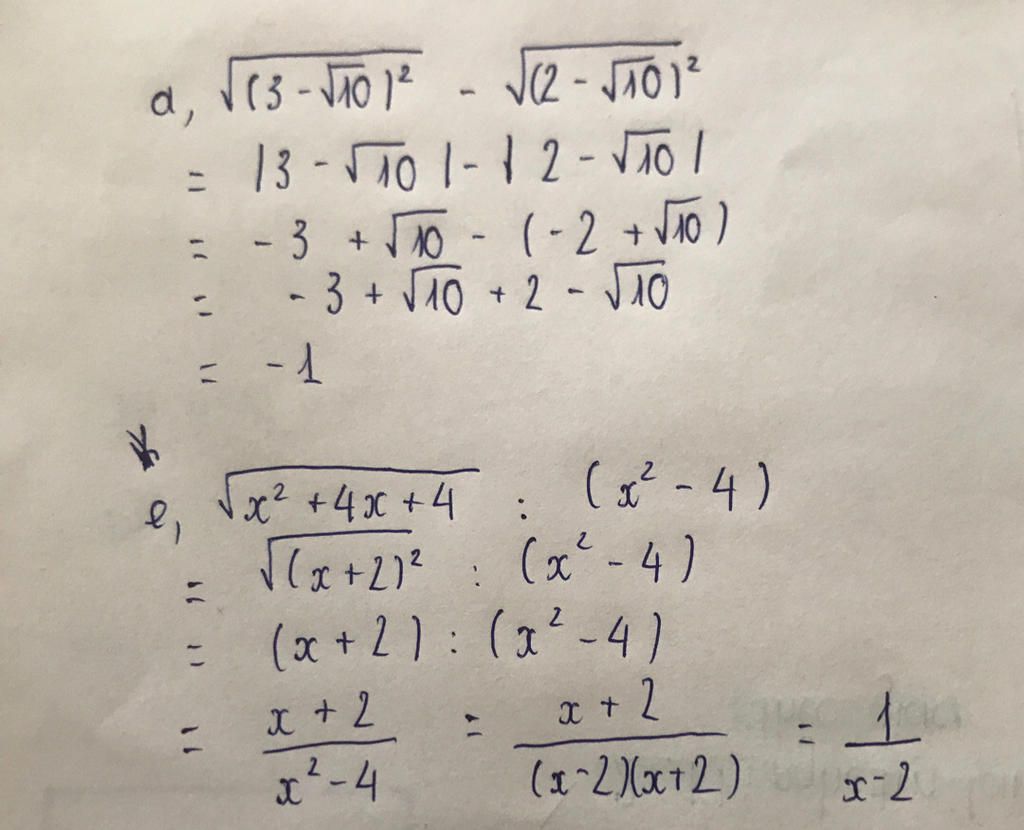 a, √(3 - √10)² - √(2 - √10)²
= |3 - √10| - |2 - √10|
= - 3 + √10 - (- 2 + √10)
= - 3 + √10 + 2 - √10
= - 1
e, √x² + 4x + 4 : (x² - 4)
= √(x + 2)² : (x² - 4)
= (x + 2) : (x² - 4)
= x + 2 / x² - 4 = x + 2 / (x - 2)(x + 2) = 1 / x - 2